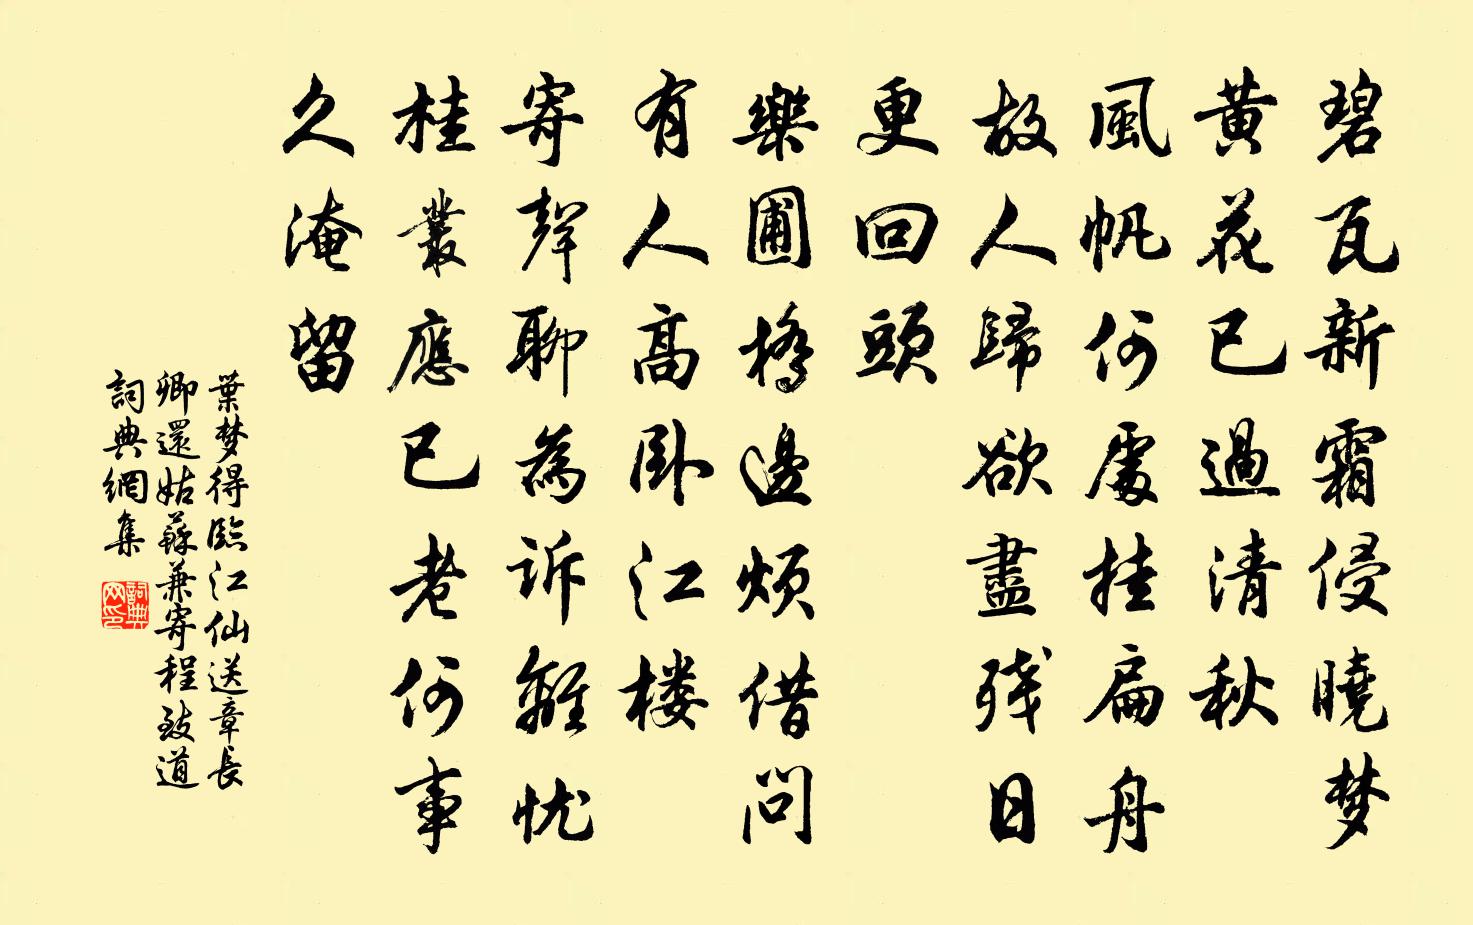 碧瓦新霜侵曉梦
黄花已過清秋
風帆何處挂扁舟
故人歸欲盡殘日
更回頭
樂圃橋邊煩借問
有人高卧江楼
寄聲聊為訴離忧
桂叢應已老何事
久淹留
葉梦得臨江仙送章長
卿還姑蘇兼寄程致道
詞典網集
詞典
网印